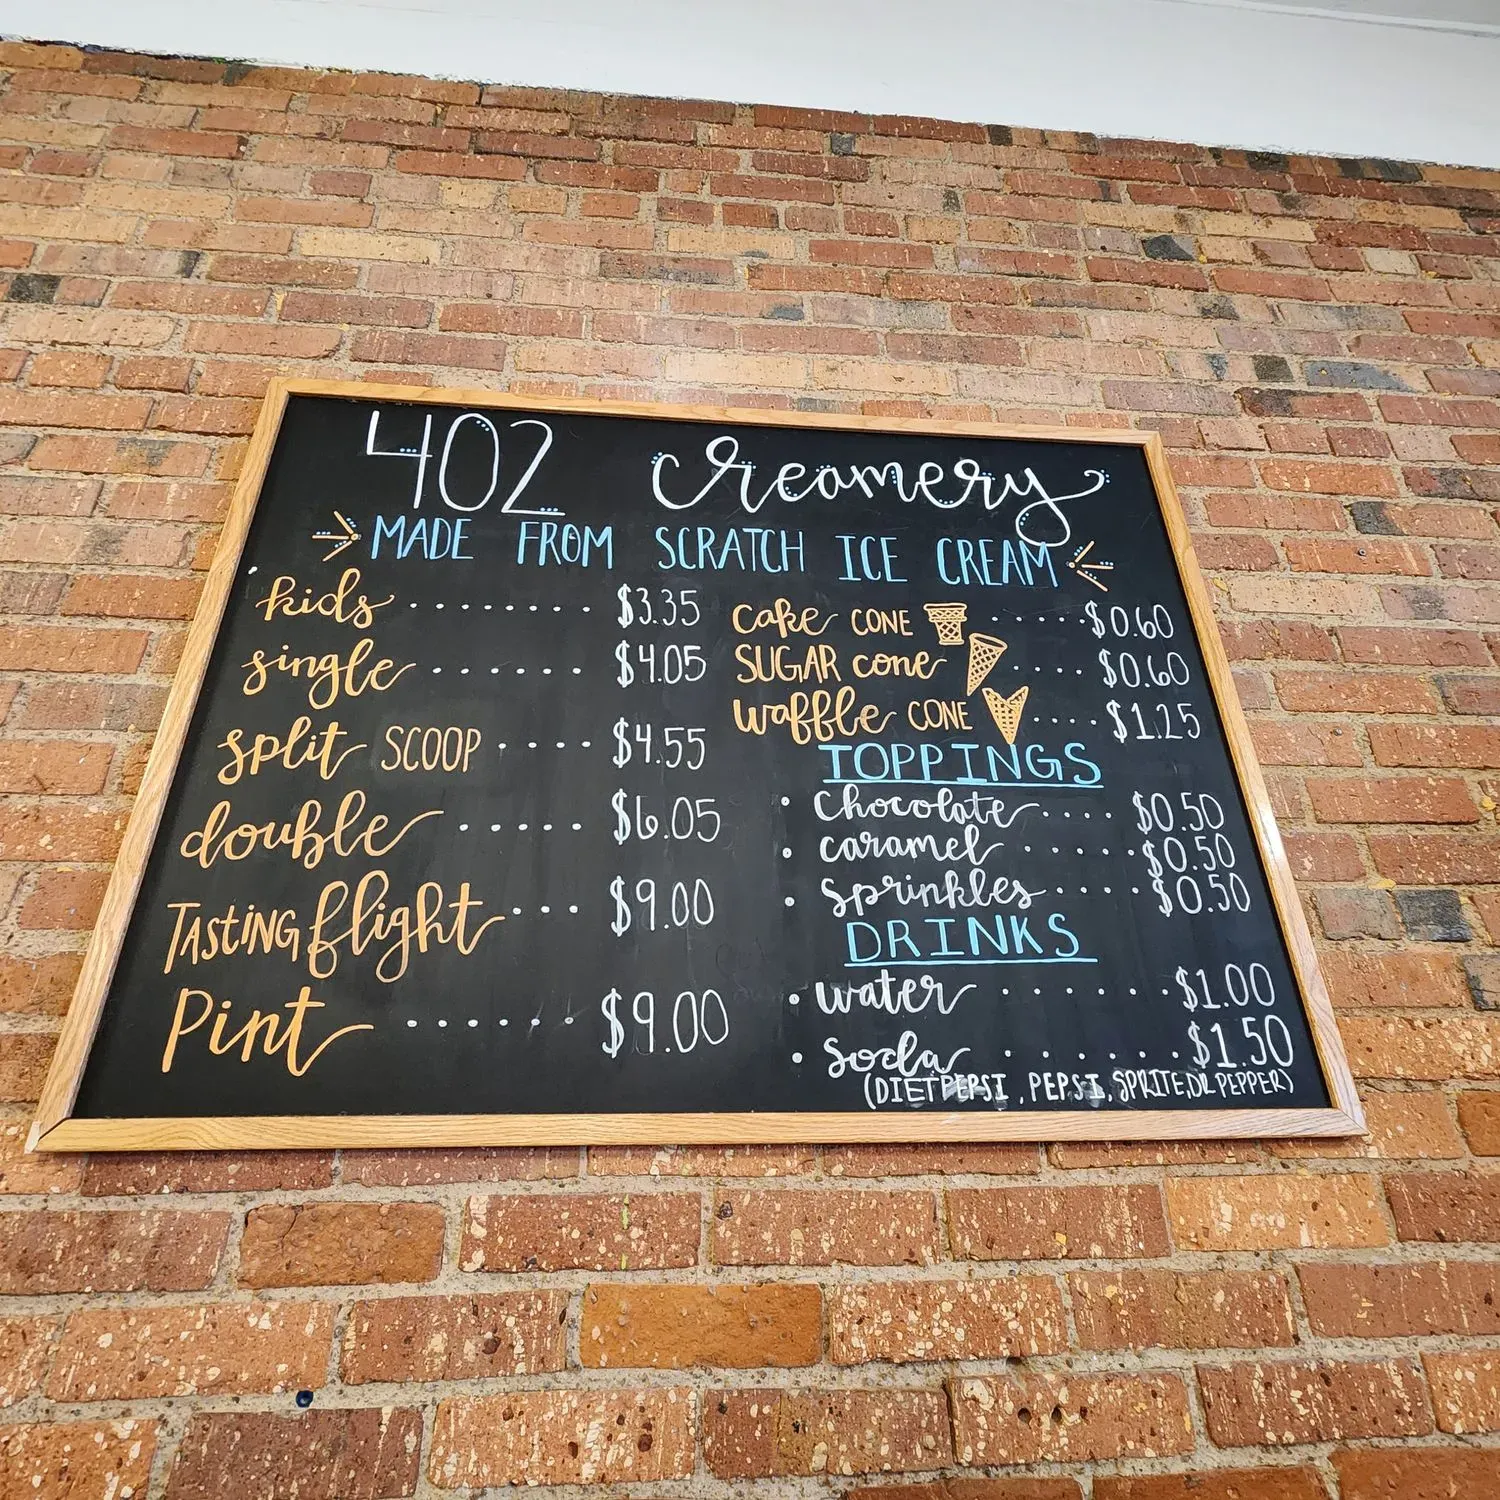 402 creamery
MADE FROM SCRATCH ICE CREAM
kids ........ $3.35
single ...... $4.05
split SCOOP .... $4.55
double ..... $6.05
TASTING flight ... $9.00
Pint ...... $9.00
cake CONE ..... $0.60
SUGAR cone .... $0.60
waffle CONE .... $1.25
TOPPINGS
• Chocolate .... $0.50
• caramel ..... $0.50
• Sprinkles .... $0.50
DRINKS
• water ...... $1.00
• Soda ...... $1.50
(DIET PEPSI, PEPSI, SPRITE, DR PEPPER)